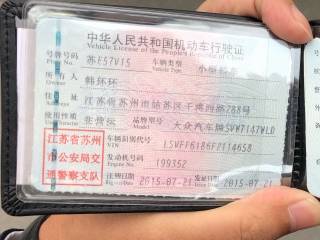 中华人民共和国机动车行驶证
Vehicle License of the People's Republic of China
号牌号码 苏E57V15 车辆类型 小型轿车
所有人 韩环环
住址 江苏省苏州市姑苏区干将西路288号
使用性质 品牌型号 大众汽车牌SVW7147WLD
江苏省苏州
市公安局交
通警察支队
车辆识别代号
VIN
发动机号码 199352
Engine No.
注册日期 2015-07-21 发证日期 2015-07-21
Register Date Issue Date